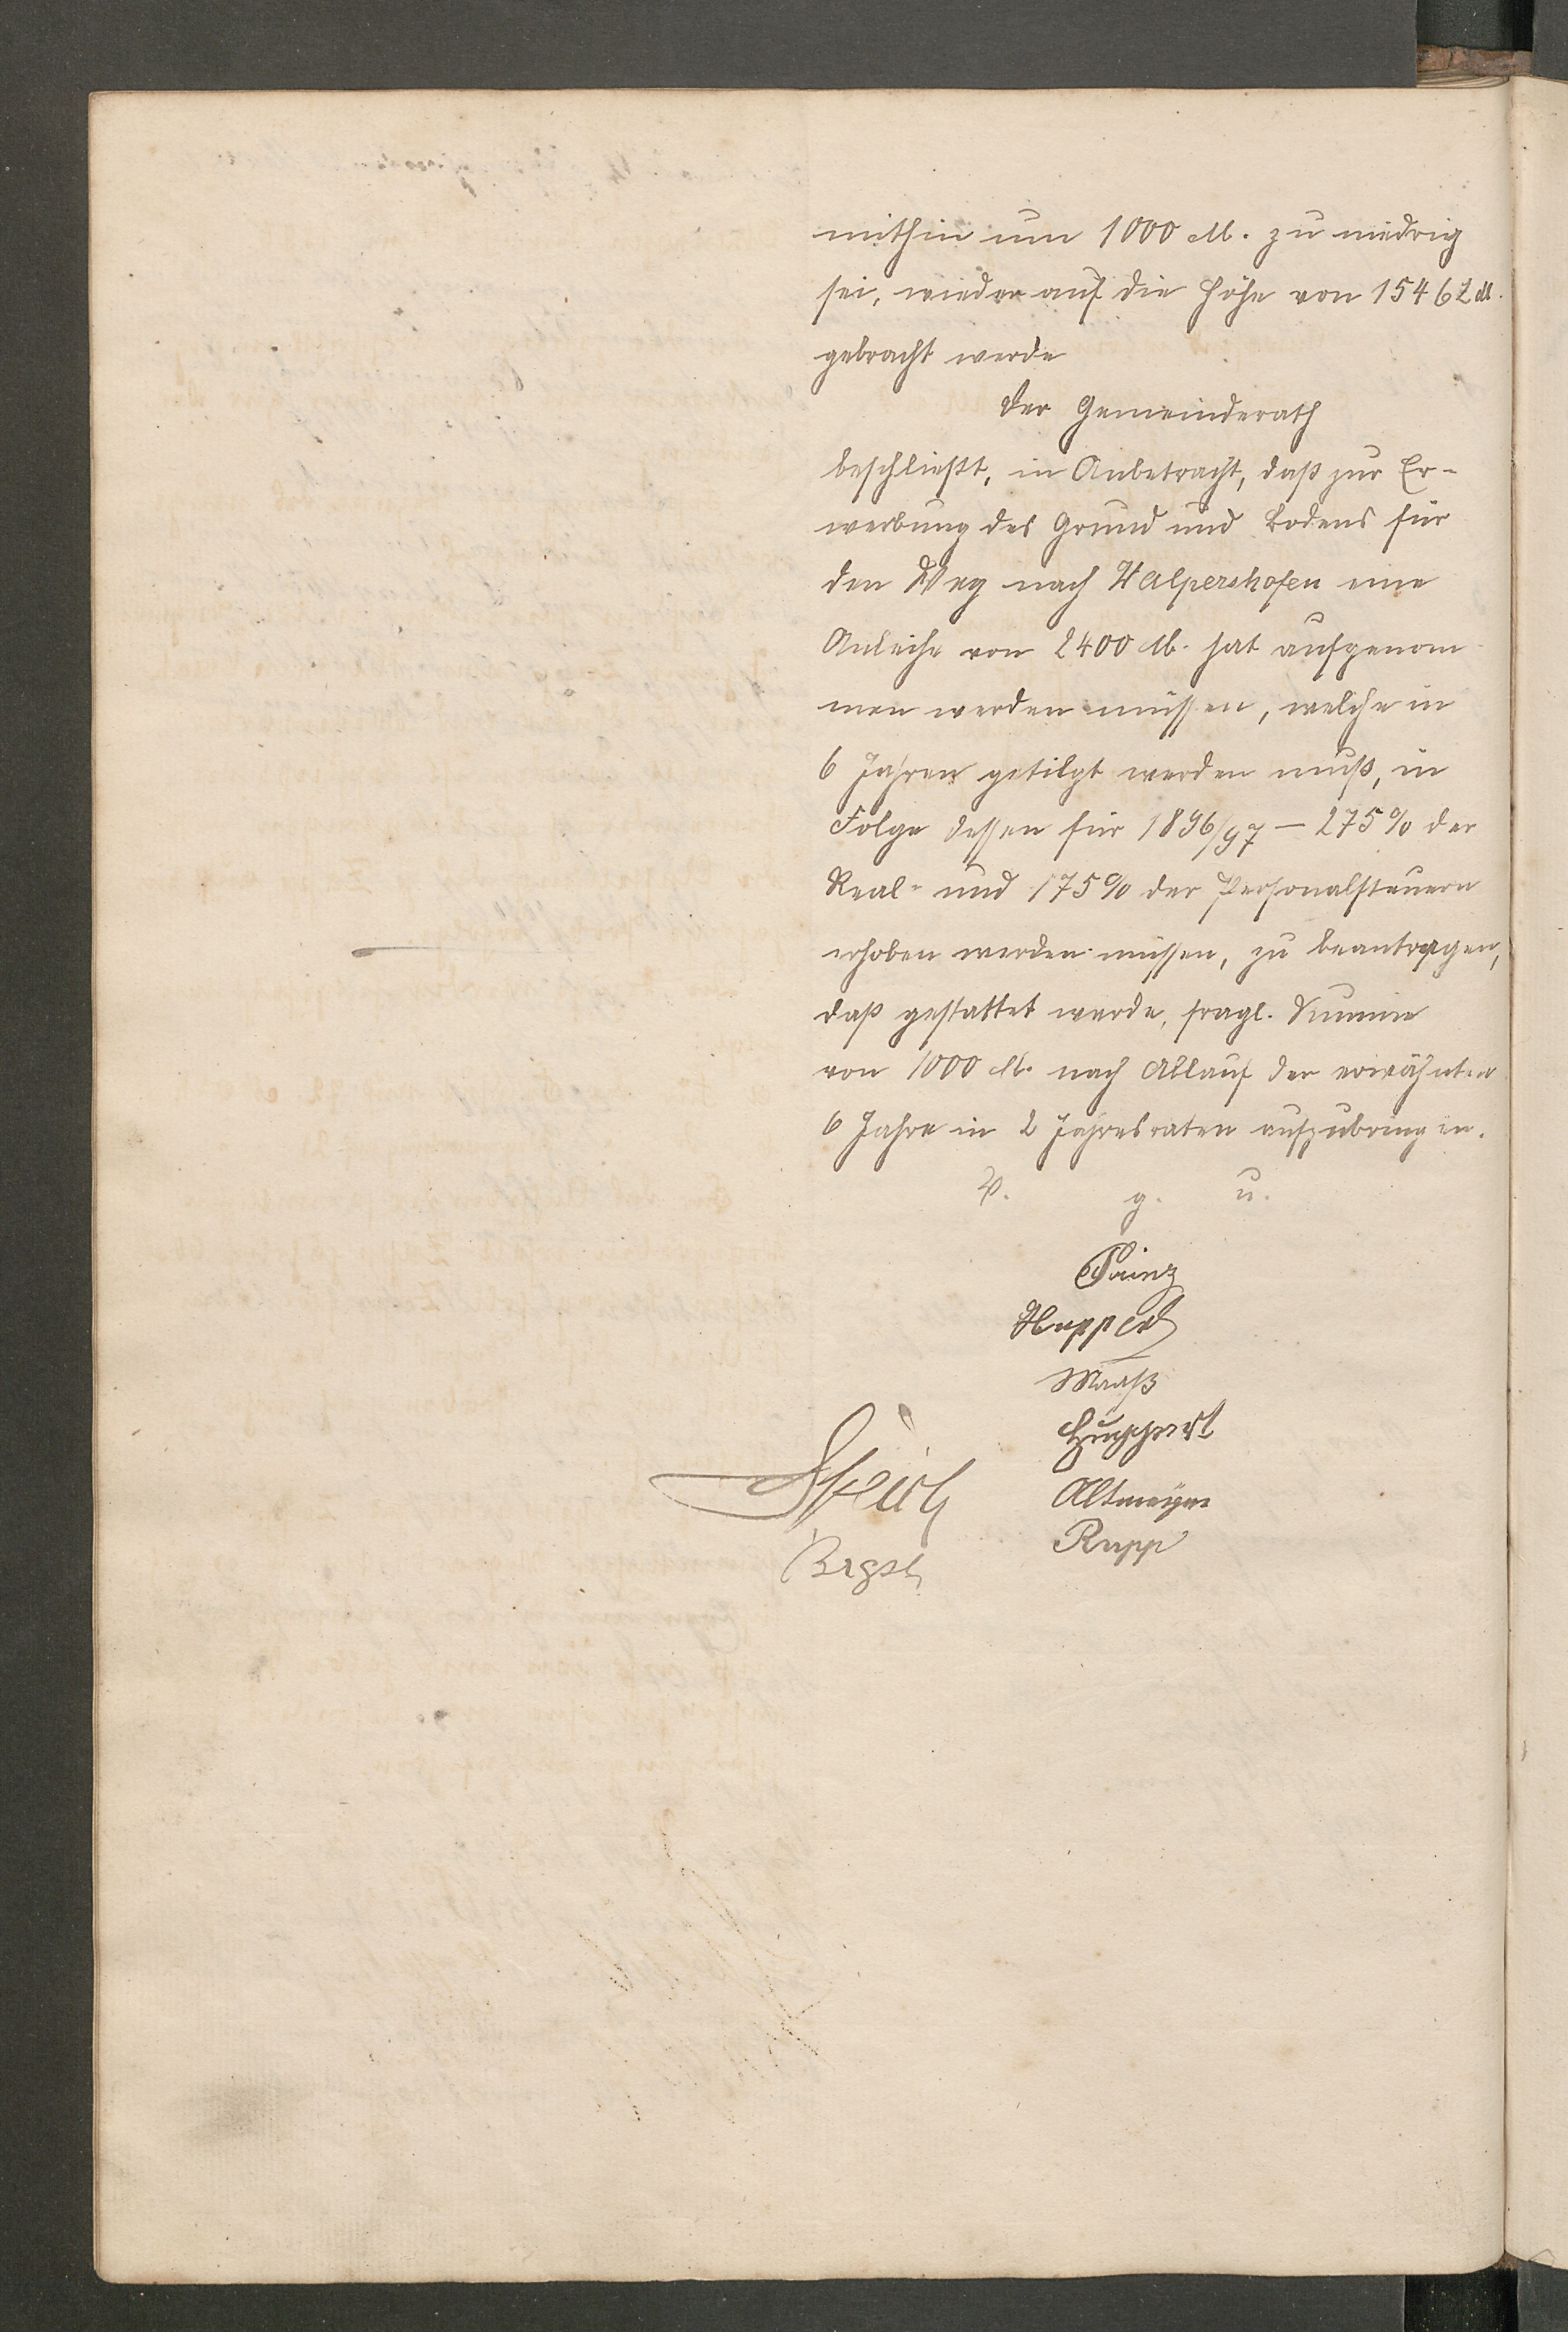 mithin um 1000 M. zu niedrig
sei, wieder auf die Höhe von 15462 M.
gebracht werde
Der Gemeinderath
beschließt, in Anbetracht, daß zur Er-
werbung des Grund und Bodens für
den Weg nach Walpershofen eine
Anleihe von 2400 M. hat aufgenom
men werden müssen, welche in
6 Jahren getilgt werden muß, in
Folge dessen für 1896/97 – 275% der
Real- und 175% der Personalsteuern
erhoben werden müssen, zu beantragen,
daß gestattet werde, fragl. Summe
von 1000 M. nach Ablauf der erwähnten
6 Jahre in 2 Jahresraten aufzubringen.
V. g. u.
Huppert
Maaß
Huppert
Altmeyer
Rupp